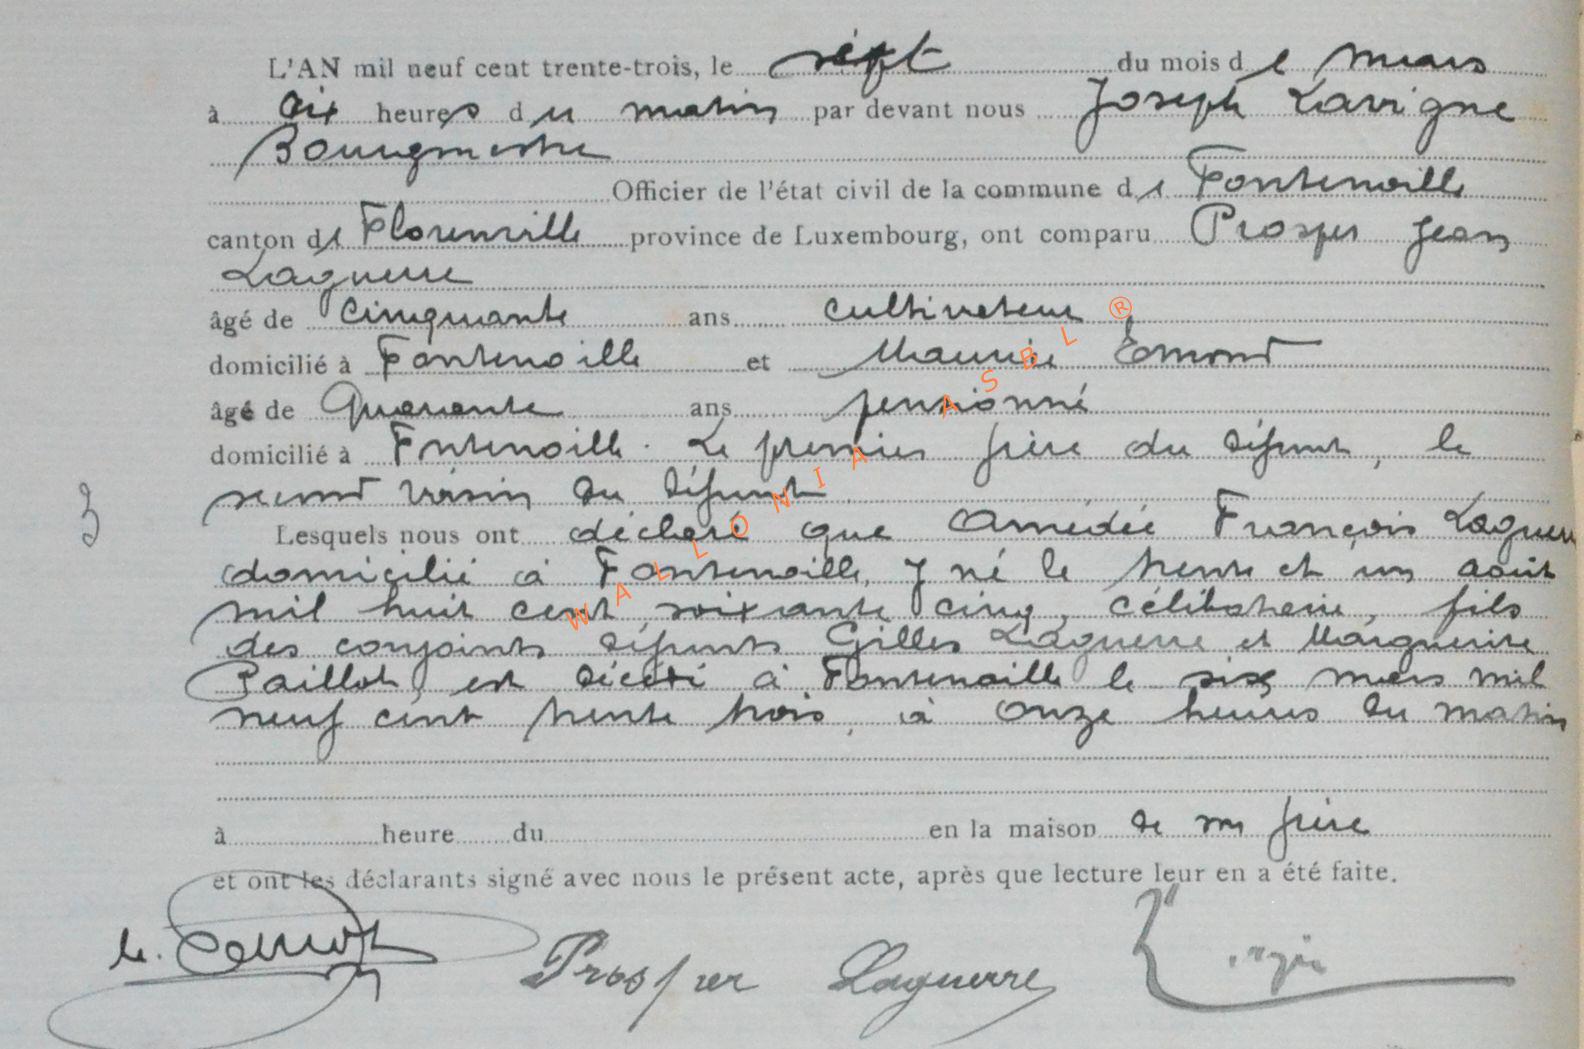 L'AN mil neuf cent trente-trois, le sept du mois de mars
à dix heures du matin par devant nous Joseph Lavigne
Bourgmestre
Officier de l'état civil de la commune de Fontenoille
canton de Florenville province de Luxembourg, ont comparu Prosper Jean
Laguerre
âgé de cinquante ans cultivateur
domicilié à Fontenoille et Maurice Edmond
âgé de Quarante ans pensionné
domicilié à Fntenoille. Le premier frère du défunt, le
second voisin du défunt
3
Lesquels nous ont déclaré que Amédée François Laguerre
domicilié à Fontenoille, y né le trente et un août
mil huit cent soixante cinq, célibataire, fils
des conjoints défunts Gilles Laguerre et Marguerite
Paillot, est décédé à Fontenoille le six mars mil
neuf cent trente trois, à onze heures du matin
à heure du en la maison de son frère
et ont les déclarants signé avec nous le présent acte, après que lecture leur en a été faite.
Prosper Laguerre
WALLONIA ASBL ®